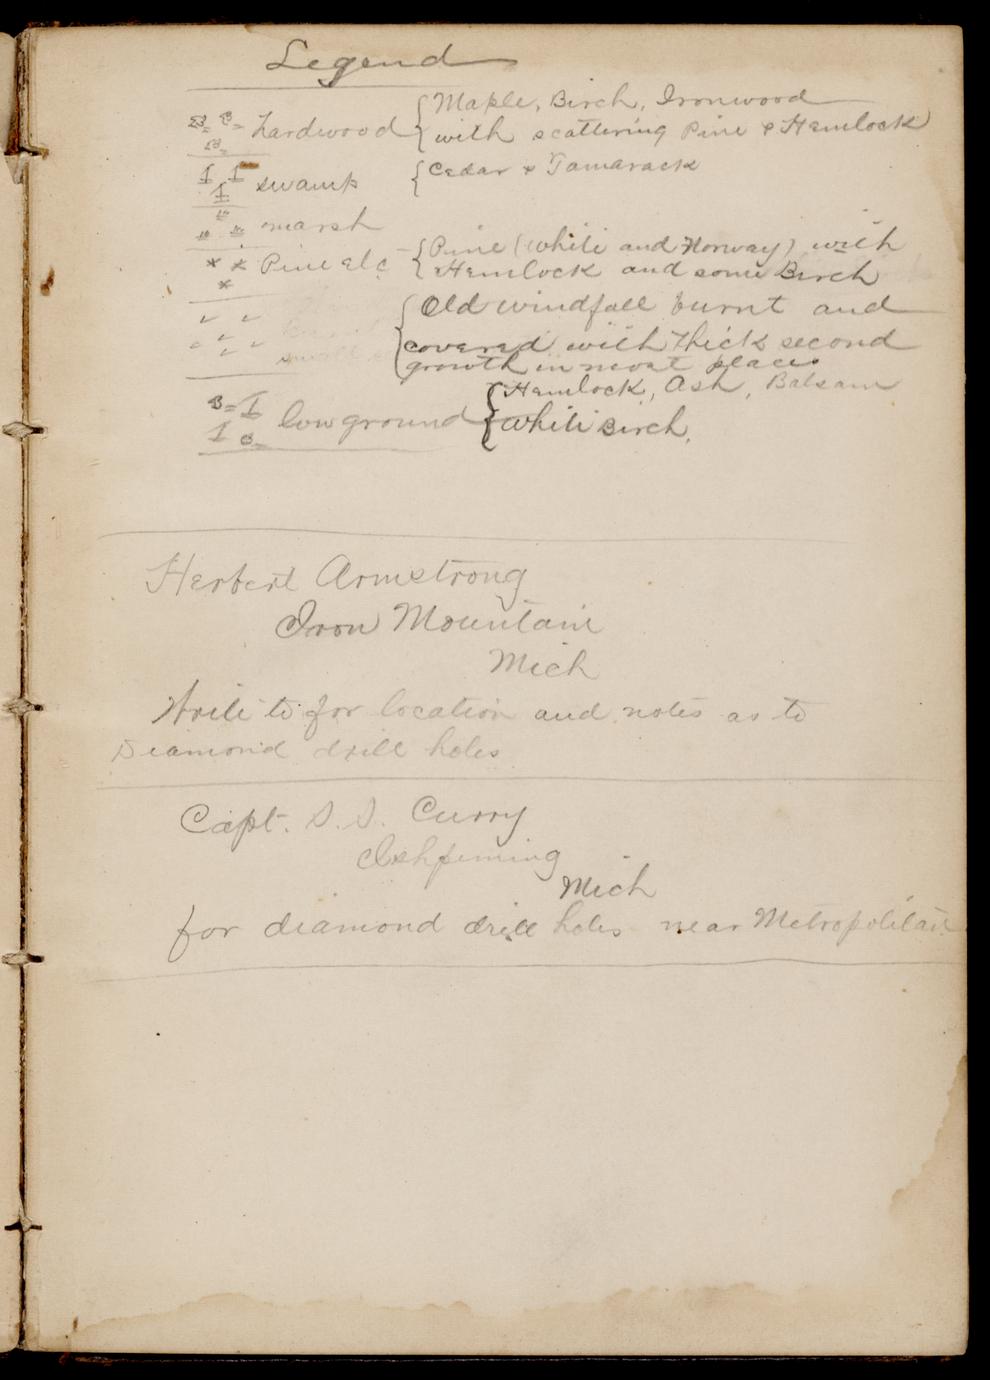 Legend
hardwood { Maple, Birch, Ironwood
with scattering Pine & Hemlock
swamp { Cedar & Tamarack
marsh
Pine etc { Pine (white and Norway) with
Hemlock and some Birch
{ Old windfall burnt and
covered with thick second
small
growth in most places
low ground { Hemlock, Ash, Balsam
White Birch.
Herbert Armstrong
Iron Mountain
Mich
Write to for location and notes as to
Diamond drill holes
Capt. S. S. Curry
Ishpeming
Mich
for diamond drill holes near Metropolitan